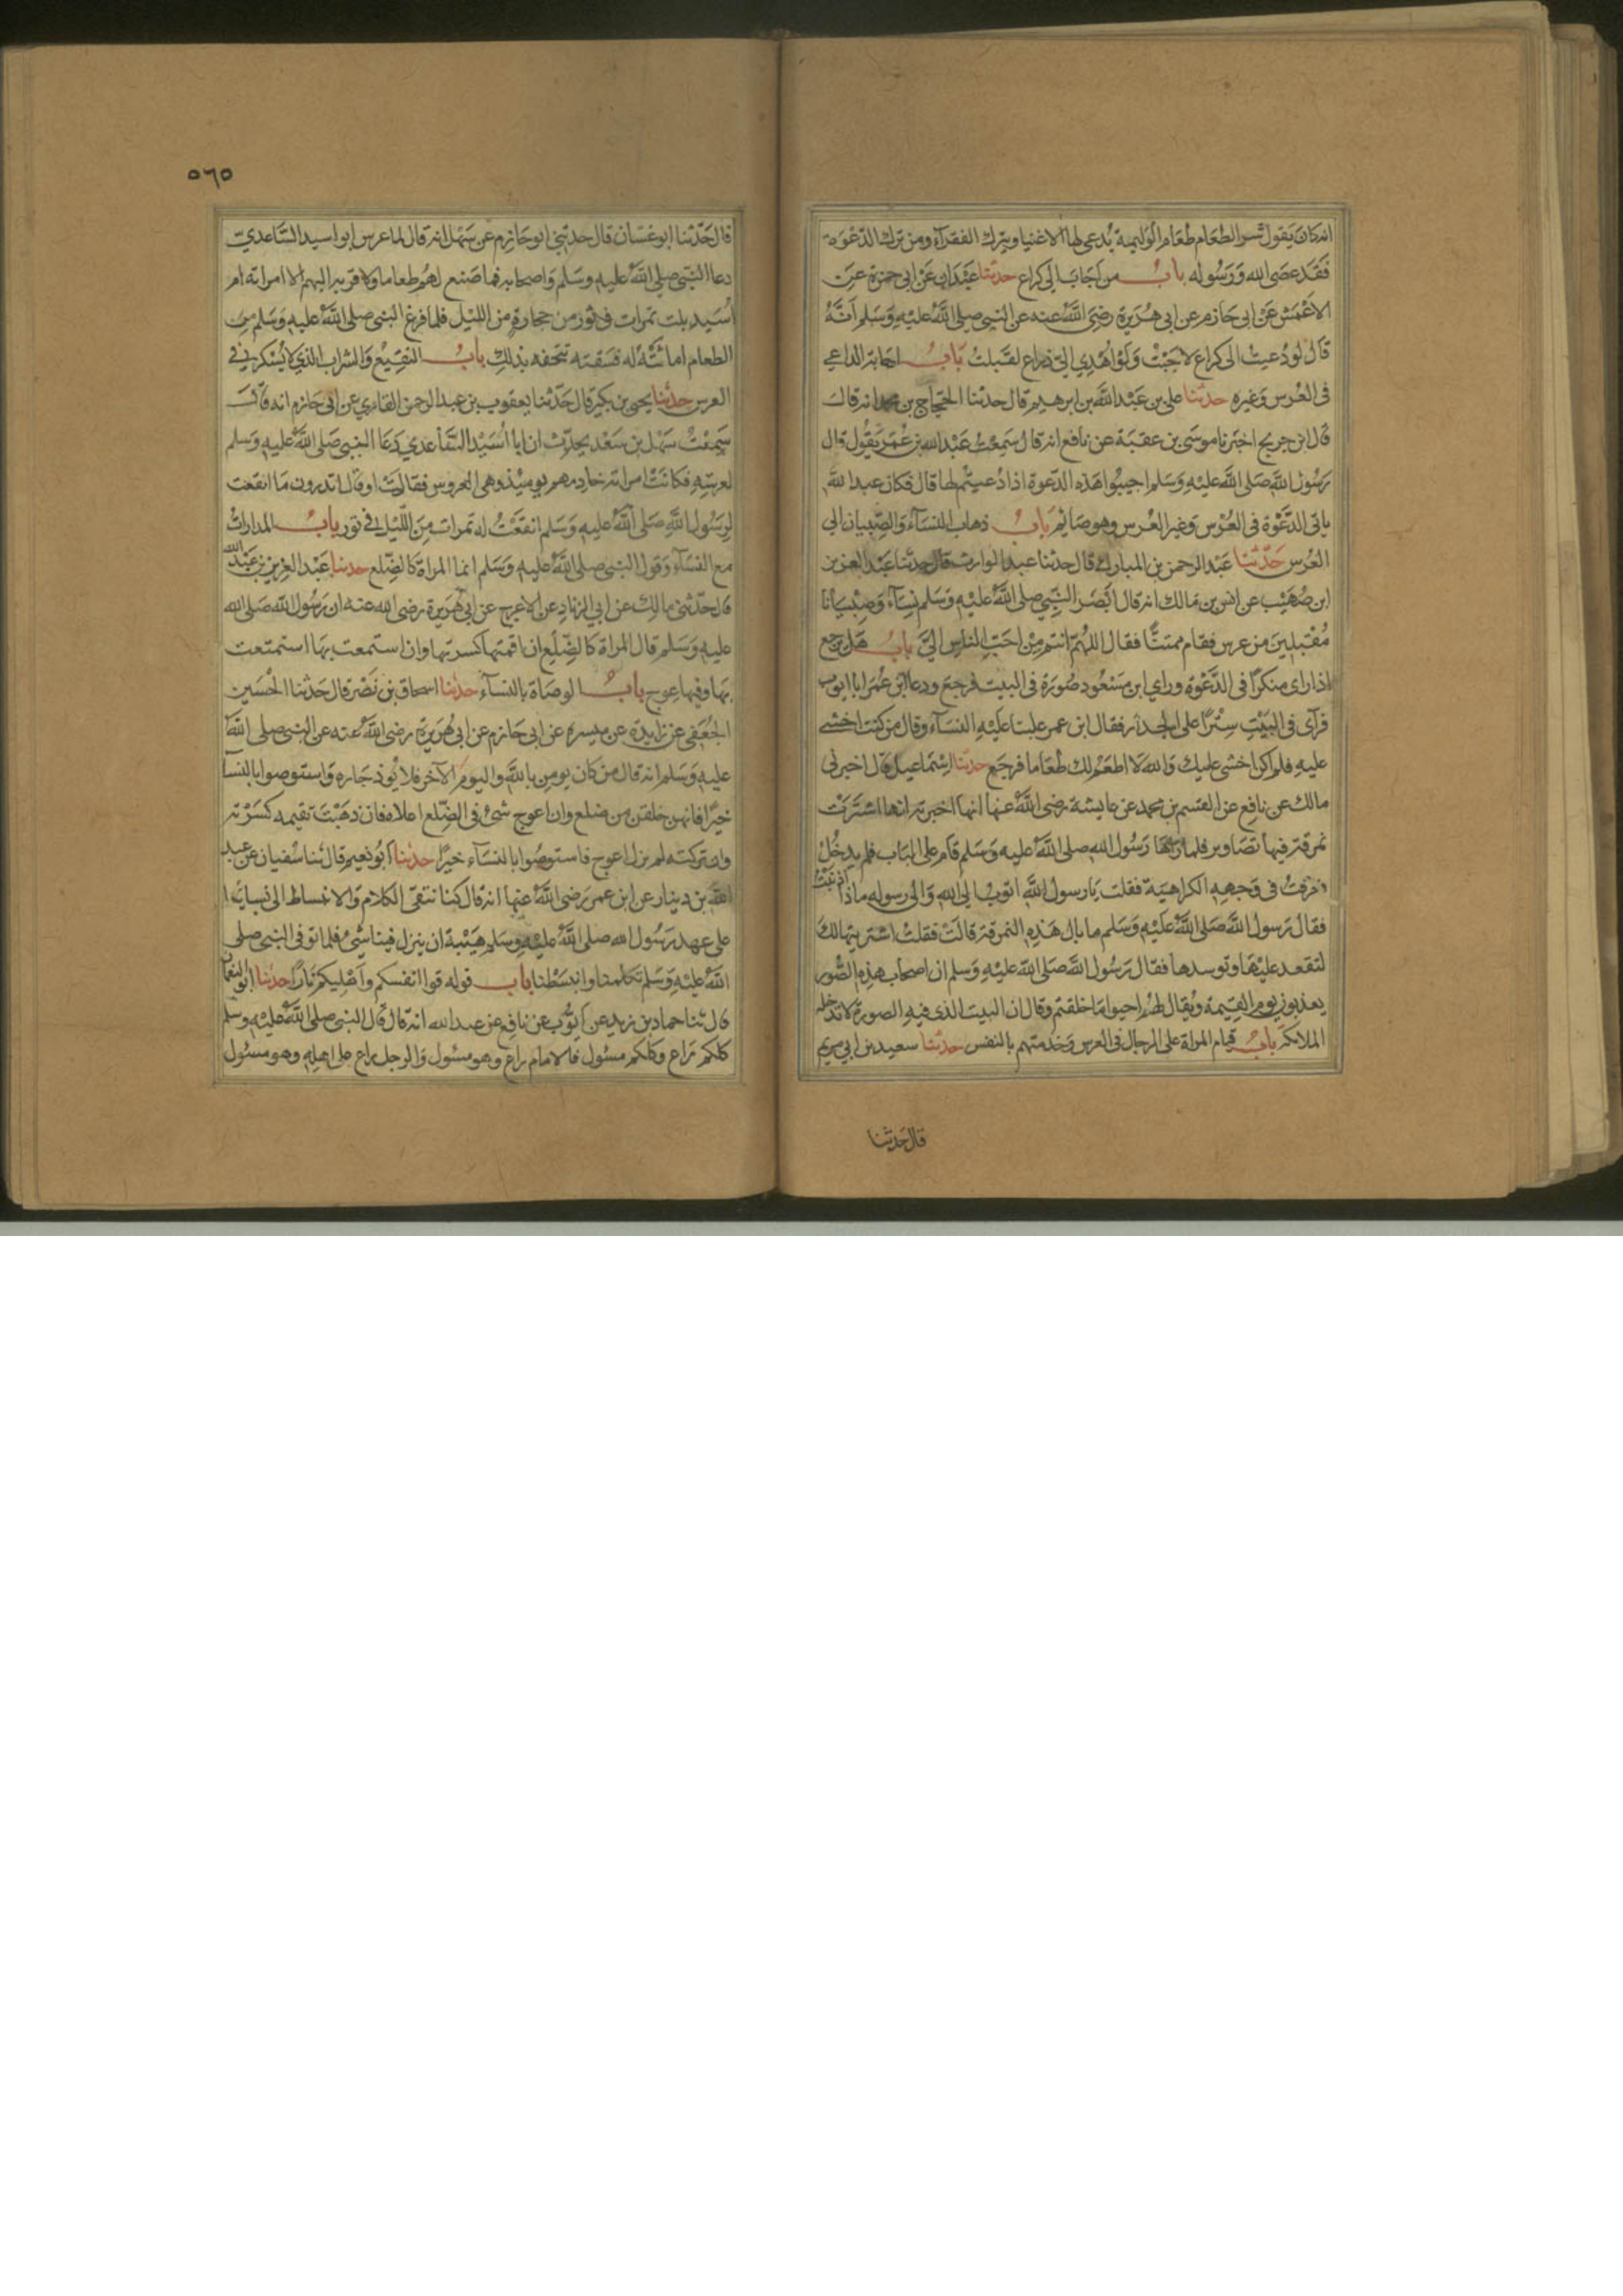 انه كان يقول شر الطعام طعام الوليمة يُدعى لها الاغنيا ويترك الفقرآء ومن ترك الدعوة
فَقَد عصَى الله وَرَسُوله بابُ من اَجَابَ الى كراع حدثنا عَبْدَان عَنْ ابى حمزة عَن
الاعْمَش عَنْ ابى حَازم عن ابى هُرَيرة رضىَ اللَّه عنه عن النبى صلى اللَّه عليهِ وَسَلم اَنَّهُ
قَالَ لو دُعيتُ الى كراع لاجَبْتُ وَلَوْ اُهْدِي الىّ ذراع لقَبلتُ بَابُ اجابة الداعي
فى العُرْس وَغيره حدثنا على بن عَبْد اللَّه بن ابرهيم قال حدثنا الحجّاج بن محمد انه قال
قال ابن جريج اخبَرنا موسَى بن عقبَة عن نافع انه قالَ سَمِعْتُ عَبْد الله بن عُمَر يَقُول قال
رَسُولُ اللَّه صَلى اللَّه عَليْهِ وَسَلم اجيبُوا هَذه الدّعوة اذا دُعيتُم لها قال فكان عبد اللَّه
ياتى الدَّعْوة فى العُرْس وَغير العُرْس وهو صَايم بَابُ ذهاب النسَآء وَالصِّبيان الى
العُرْس حَدّثنا عَبْد الرحمن بن المبارك قال حدثنا عبد الوارث قال حدثنا عَبْد العزيز
ابن صُهَيْب عن انس بن مَالك انه قال ابْصَر النَّبِيُّ صلى اللَّه عليْهِ وَسَلم نِسَآءً وَصِبْيانا
مُقْبلِينَ من عرس فقام ممتنًّا فقال اللهُمّ انتم مِنْ احَبّ الناس اليَّ بابُ هَل يرجع
اذا راى منكرًا فى الدَّعْوة وراي ابن مسْعُود صُورَة فى البيت فرجعَ ودعا ابن عُمَر ابا ايوب
فرآى فى البَيْتِ سِتْرًا على الجدار فقال ابن عمر غلبنا عليْهِ النسَآء وقال من كنت اخشى
عليهِ فلم اكن اخشى عليك وَالله لا اطعَمُ لك طعَاما فرجَع حدثنا اِسْمَاعيل قال اخبرنى
مالك عن نافِع عن القسم بن محمد عن عايشة رضى اللَّه عنها انها اخبرته انها اشتَرَتْ
نمرقة فيها تصَاوير فلما رَاها رَسُول الله صلى اللَّه عليه وَسَلم قام على البَاب فلم يدخُلْ
فعرفتُ فى وَجههِ الكراهيَة فقلت يَا رسولَ اللَّه اتوبُ الى الله وَالى رسوله ماذا اذنبْتُ
فقالَ رَسول اللَّه صَلى اللَّه عَليْهِ وَسَلم ما بالُ هَذِه النمرقة قالتْ فقلتُ اشتريتها لكَ
لتقعد عليْهَا وتوسدها فقال رَسُول اللَّه صَلى اللَّه عليْهِ وَسَلم ان اصحاب هذِه الصُّور
يعذبون يوم القيمة ويُقال لهُم احيوا مَا خلقتم وقال ان البيت الذى فيهِ الصورة لا تدخله
الملائكة بابُ قيام المراة على الرجال فى العرس وَخدمتهم بالنفس حدثنا سعيد بن ابى مريم
قال حَدثنا
٥٦٥
قال حَدّثنا ابو غسّان قال حدثنى ابو حَازم عن سَهْل انه قال لما عرس ابو اسيد السَّاعدي
دعا النبي صلى اللَّه عليهِ وسَلم وَاصحابه فما صَنع لهُم طعاما ولا قربه اليهم الا امراته ام
اُسَيد بلت تمرات فى تور من حجارة من الليل فلما فرغ النبى صلى اللَّه عليهِ وَسَلم مِن
الطعام اماثَتْهُ له فسَقته تتحفه بذلك بابُ النقِيْع وَالشراب الذي لا يُسْكر فى
العرس حدثنا يحيى بن بكير قال حَدّثنا يعقوب بن عبد الرحمن القاري عن ابى حَازم انه قال
سَمِعْتُ سَهْل بن سَعْد يحدّث ان ابا اُسَيْد السَّاعدي دَعَا النبى صَلى اللَّه عليهِ وَسَلم
لعرسِهِ فكانتْ امراته خادمهم يوميذ وهى العروس فقالت او قال اتدرون مَا انقعَت
لِرَسُول اللَّه صَلى اللَّه عَليهِ وَسَلم انقعَتْ له تمرات مِنَ اللَّيْل فى تور بابُ المدارات
مع النسَآء وَقول النبى صلى اللَّه عليهِ وَسَلم انما المراة كالضِّلع حدثنا عَبْد العزيز بن عَبْد اللَّه
قال حدّثنى مالِك عن ابي الزناد عن الاعرج عن ابى هُرَيرة رضى الله عنه ان رَسُول اللَّه صَلى الله
عليهِ وَسَلم قال المراة كالضِّلَع ان اقمتها كسرتها وان استمعت بهَا استمتعت
بهَا وفيها عِوج بابُ الوصَاة بالنسَآء حدثنا اسحاق بن نَصْر قال حَدثنا الحُسَين
الجُعْفى عن زايدة عن ميسره عن ابى حَازم عن ابى هُرَيرة رضى اللَّه عنه عن النبى صلى اللَّه
عليهِ وَسَلم انه قال من كان يومن باللَّه واليوم الآخر فلا يُوذ جَاره وَاستوصوا بالنسآ
خيْرًا فانهن خلقن من ضلع وان اعوج شئ فى الضِّلع اعلاه فان ذهَبْتَ تقيمه كسَرْته
وان تركته لم يزل اعوج فاستوصُوا بالنسَآء خيْرًا حدثنا ابو نعيم قال ثنا سُفيان عن عبد
اللَّه بن دينار عن ابن عمر رَضى اللَّه عنهما انه قال كنا نتقى الكلام وَالانبساط الى نسائنا
على عهد رَسُول الله صلى اللَّه عليهِ وسَلم هَيْبة ان ينزل فينا شئ فلما توفى النبى صلى
اللَّه عليْهِ وَسَلم تكلمنا وانبسَطْنا باب قوله قوا انفسكم وَاَهْلِيكم نَارًا حدثنا ابو النعمان
قال ثنا حماد بن زيد عن ايّوب عن نافع عن عبد الله انه قال قال النبى صلى اللَّه عليْهِ وسَلم
كلكم رَاع وكلكم مسئول فالامام راع وهو مسئول وَالرجل راع على اهلِهِ وهو مسئول